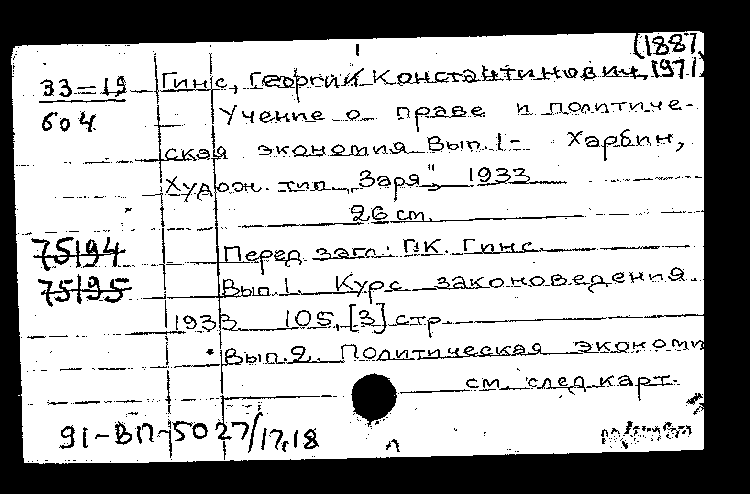 (1887,
33-19 Гинс, Георгий Константинович, 1971)
604 Учение о праве и политиче-
ская экономия Вып. 1- Харбин,
Худож. тип. „Заря", 1933
26 cm.
75194 Перед загл.: Г.К. Гинс.
75195 Вып. 1. Курс законоведения.
1933. 105, [3] стр.
Вып. 2. Политическая экономи
см. след. карт.
91-ВП-5027/17,18